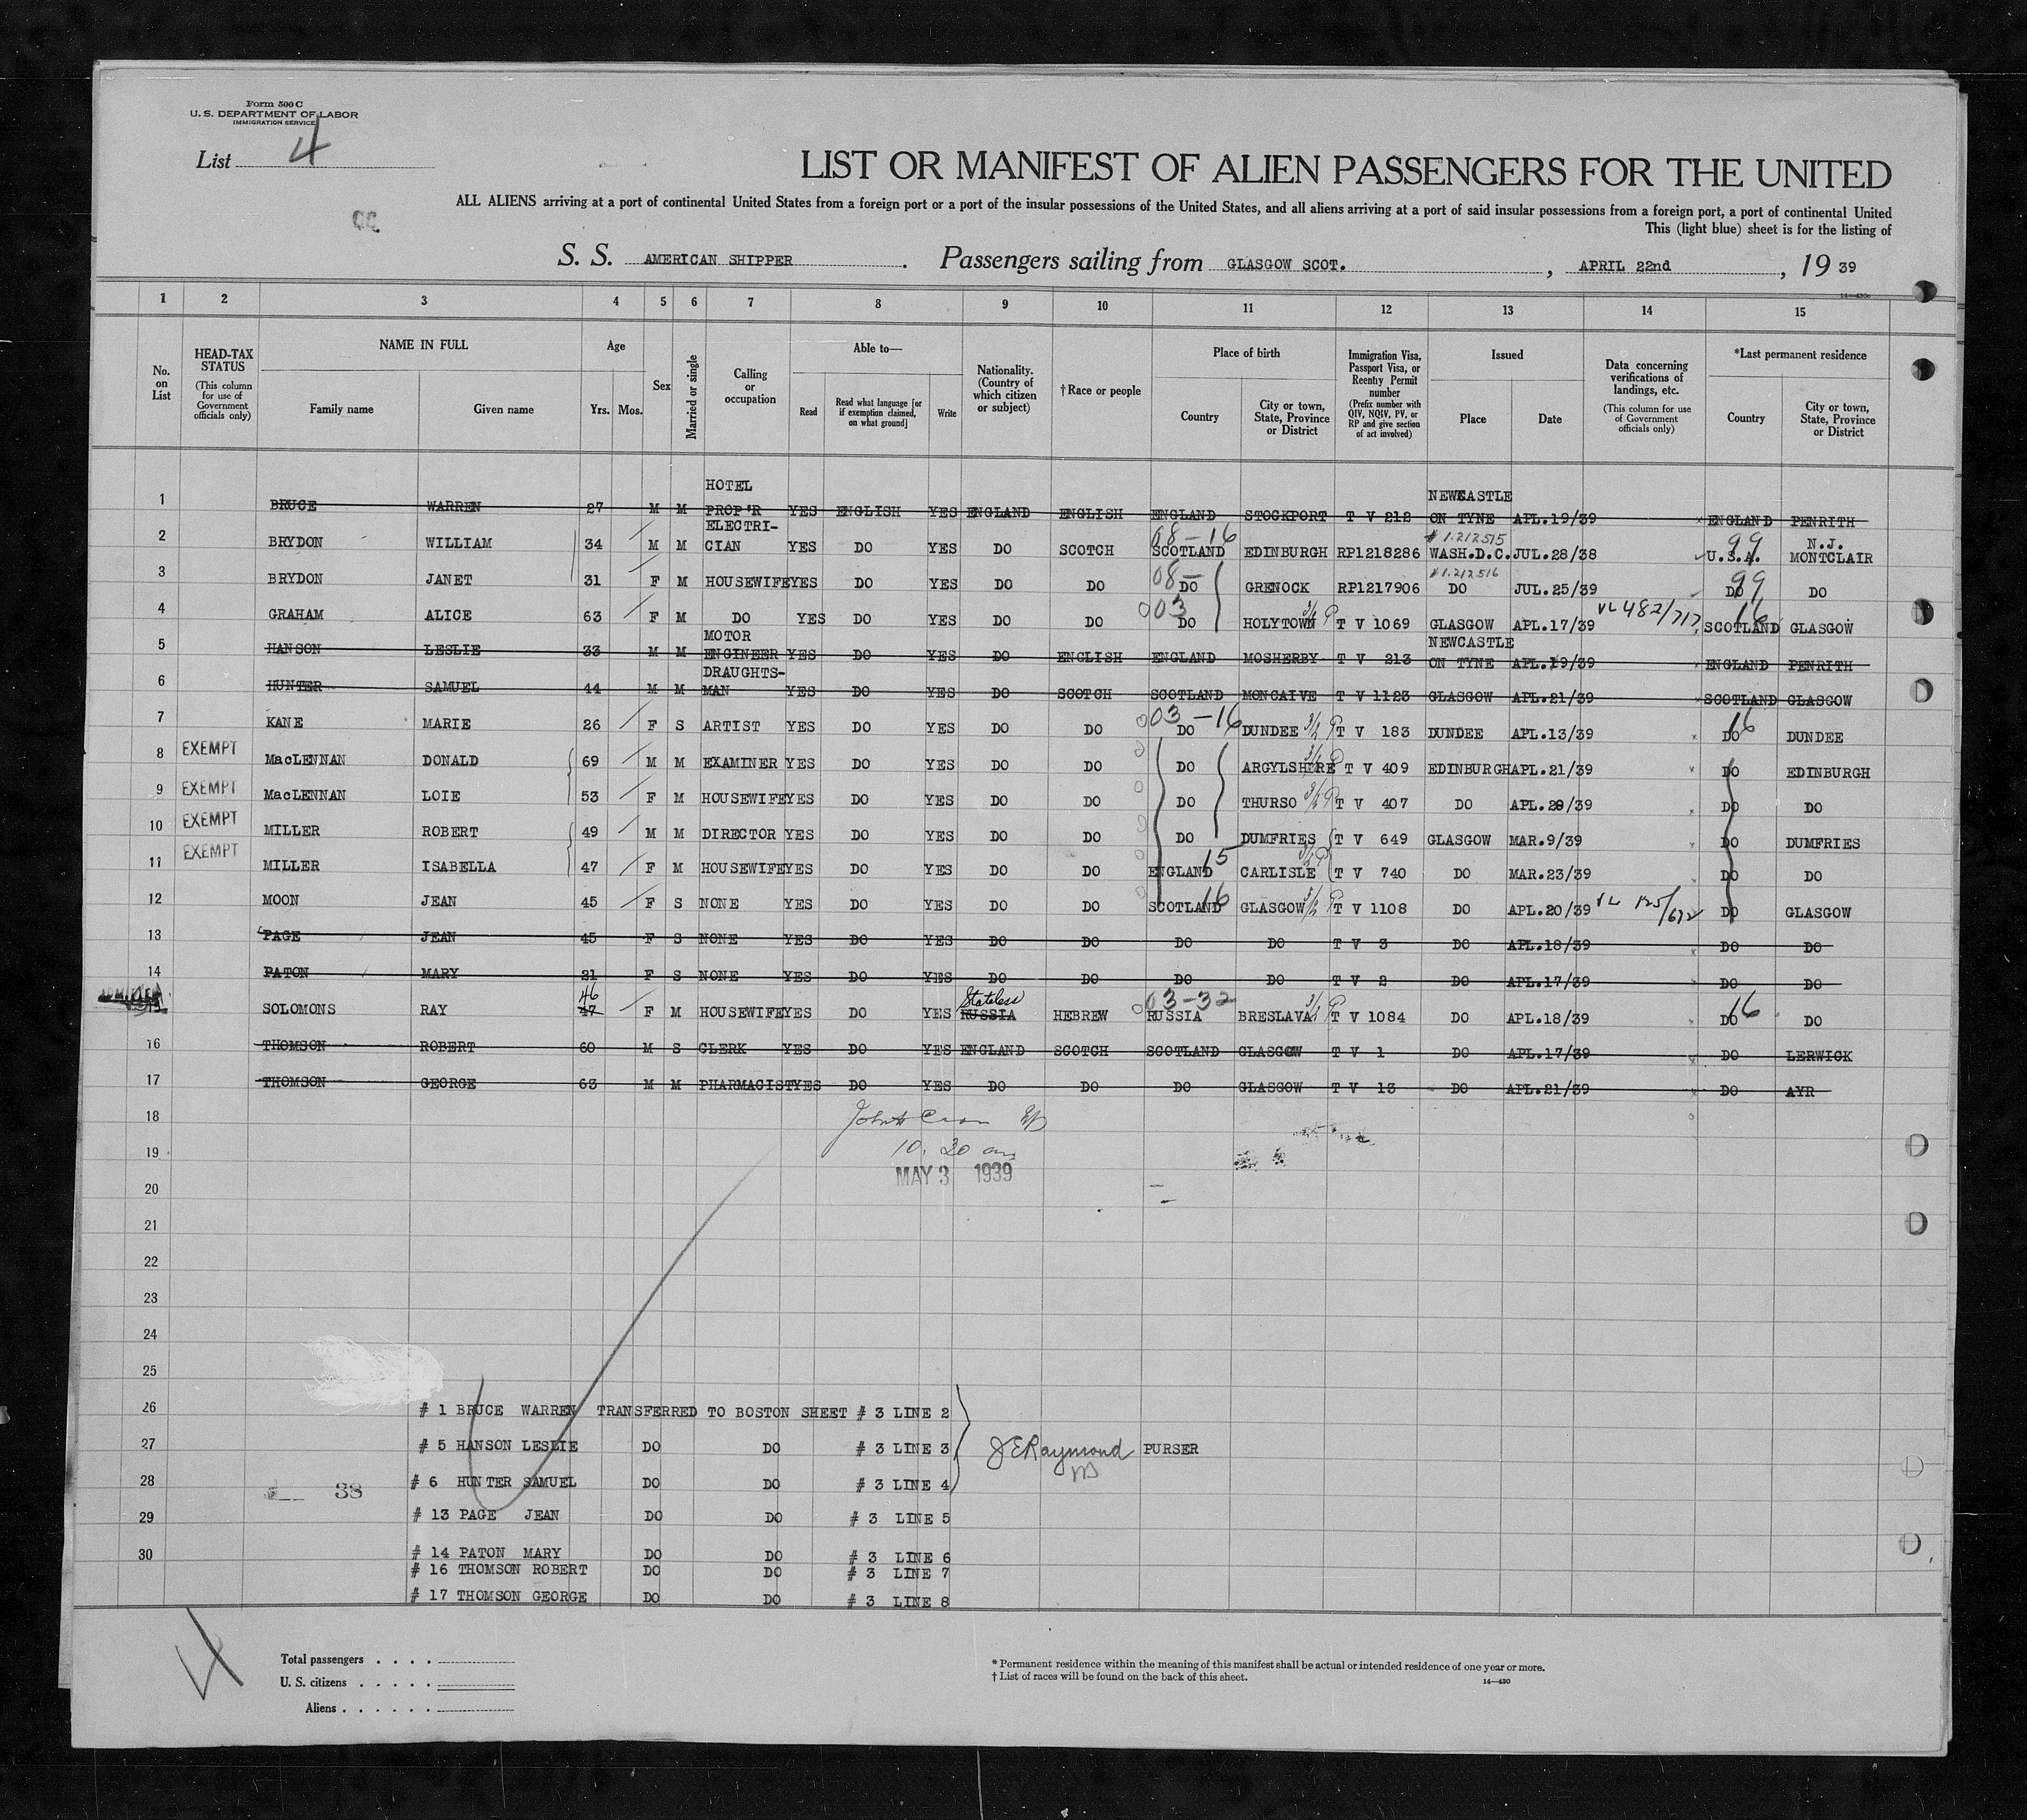 Form 500 C
U. S. DEPARTMENT OF LABOR
IMMIGRATION SERVICE
List 4
LIST OR MANIFEST OF ALIEN PASSENGERS FOR THE UNITED
ALL ALIENS arriving at a port of continental United States from a foreign port or a port of the insular possessions of the United States, and all aliens arriving at a port of said insular possessions from a foreign port, a port of continental United
This (light blue) sheet is for the listing of
S. S. AMERICAN SHIPPER. Passengers sailing from GLASGOW SCOT. , APRIL 22nd , 19 39
1 2 3 4 5 6 7 8 9 10 11 12 13 14 15
No. on List
HEAD-TAX STATUS (This column for use of Government officials only)
NAME IN FULL Family name Given name
Age Yrs. Mos.
Sex
Married or single
Calling or occupation
Able to— Read Read what language [or if exemption claimed, on what ground] Write
Nationality. (Country of which citizen or subject)
† Race or people
Place of birth Country City or town, State, Province or District
Immigration Visa, Passport Visa, or Reentry Permit number (Prefix number with QIV, NQIV, PV, or RP and give section of act involved)
Issued Place Date
Data concerning verifications of landings, etc. (This column for use of Government officials only)
*Last permanent residence Country City or town, State, Province or District
1 BRUCE WARREN 27 M M HOTEL PROP'R YES ENGLISH YES ENGLAND ENGLISH ENGLAND STOCKPORT T V 212 NEWCASTLE ON TYNE APL.19/39 ENGLAND PENRITH
2 BRYDON WILLIAM 34 M M ELECTRI-CIAN YES DO YES DO SCOTCH 08-16 SCOTLAND EDINBURGH RP1218286 #1.212515 WASH.D.C. JUL.28/38 99 U.S.A. N.J. MONTCLAIR
3 BRYDON JANET 31 F M HOUSEWIFE YES DO YES DO DO 08- DO GRENOCK RP1217906 #1.212516 DO JUL.25/39 99 DO DO
4 GRAHAM ALICE 63 F M DO YES DO YES DO DO 03 DO HOLYTOWN 3/2 P T V 1069 GLASGOW APL.17/39 VL 482/717 16 SCOTLAND GLASGOW
5 HANSON LESLIE 33 M M MOTOR ENGINEER YES DO YES DO ENGLISH ENGLAND MOSHERBY T V 213 NEWCASTLE ON TYNE APL.19/39 ENGLAND PENRITH
6 HUNTER SAMUEL 44 M M DRAUGHTS-MAN YES DO YES DO SCOTCH SCOTLAND MONCAIVE T V 1123 GLASGOW APL.21/39 SCOTLAND GLASGOW
7 KANE MARIE 26 F S ARTIST YES DO YES DO DO 03-16 DO DUNDEE 3/2 P T V 183 DUNDEE APL.13/39 16 DO DUNDEE
8 EXEMPT MacLENNAN DONALD 69 M M EXAMINER YES DO YES DO DO DO ARGYLSHIRE 3/2 P T V 409 EDINBURGH APL.21/39 DO EDINBURGH
9 EXEMPT MacLENNAN LOIE 53 F M HOUSEWIFE YES DO YES DO DO DO THURSO 3/2 P T V 407 DO APL.20/39 DO DO
10 EXEMPT MILLER ROBERT 49 M M DIRECTOR YES DO YES DO DO DO DUMFRIES T V 649 GLASGOW MAR.9/39 DO DUMFRIES
11 EXEMPT MILLER ISABELLA 47 F M HOUSEWIFE YES DO YES DO DO 15 ENGLAND CARLISLE 3/2 P T V 740 DO MAR.23/39 DO DO
12 MOON JEAN 45 F S NONE YES DO YES DO DO 16 SCOTLAND GLASGOW 3/2 P T V 1108 DO APL.20/39 VL 125/672 DO GLASGOW
13 PAGE JEAN 45 F S NONE YES DO YES DO DO DO DO T V 3 DO APL.18/39 DO DO
14 PATON MARY 21 F S NONE YES DO YES DO DO DO DO T V 2 DO APL.17/39 DO DO
ADMITTED 15 SOLOMONS RAY 46 47 F M HOUSEWIFE YES DO YES Stateless RUSSIA HEBREW 03-32 RUSSIA BRESLAVA 3/2 P T V 1084 DO APL.18/39 16 DO DO
16 THOMSON ROBERT 60 M S CLERK YES DO YES ENGLAND SCOTCH SCOTLAND GLASGOW T V 1 DO APL.17/39 DO LERWICK
17 THOMSON GEORGE 63 M M PHARMACIST YES DO YES DO DO DO GLASGOW T V 13 DO APL.21/39 DO AYR
18
19 10.20 am
MAY 3 1939
20
21
22
23
24
25
26 # 1 BRUCE WARREN TRANSFERRED TO BOSTON SHEET # 3 LINE 2
27 # 5 HANSON LESLIE DO DO # 3 LINE 3 J E Raymond PURSER
28 # 6 HUNTER SAMUEL DO DO # 3 LINE 4
38
29 # 13 PAGE JEAN DO DO # 3 LINE 5
30 # 14 PATON MARY DO DO # 3 LINE 6
# 16 THOMSON ROBERT DO DO # 3 LINE 7
# 17 THOMSON GEORGE DO DO # 3 LINE 8
Total passengers . . . .
U. S. citizens . . . . .
Aliens . . . . . .
* Permanent residence within the meaning of this manifest shall be actual or intended residence of one year or more.
† List of races will be found on the back of this sheet.
14—430